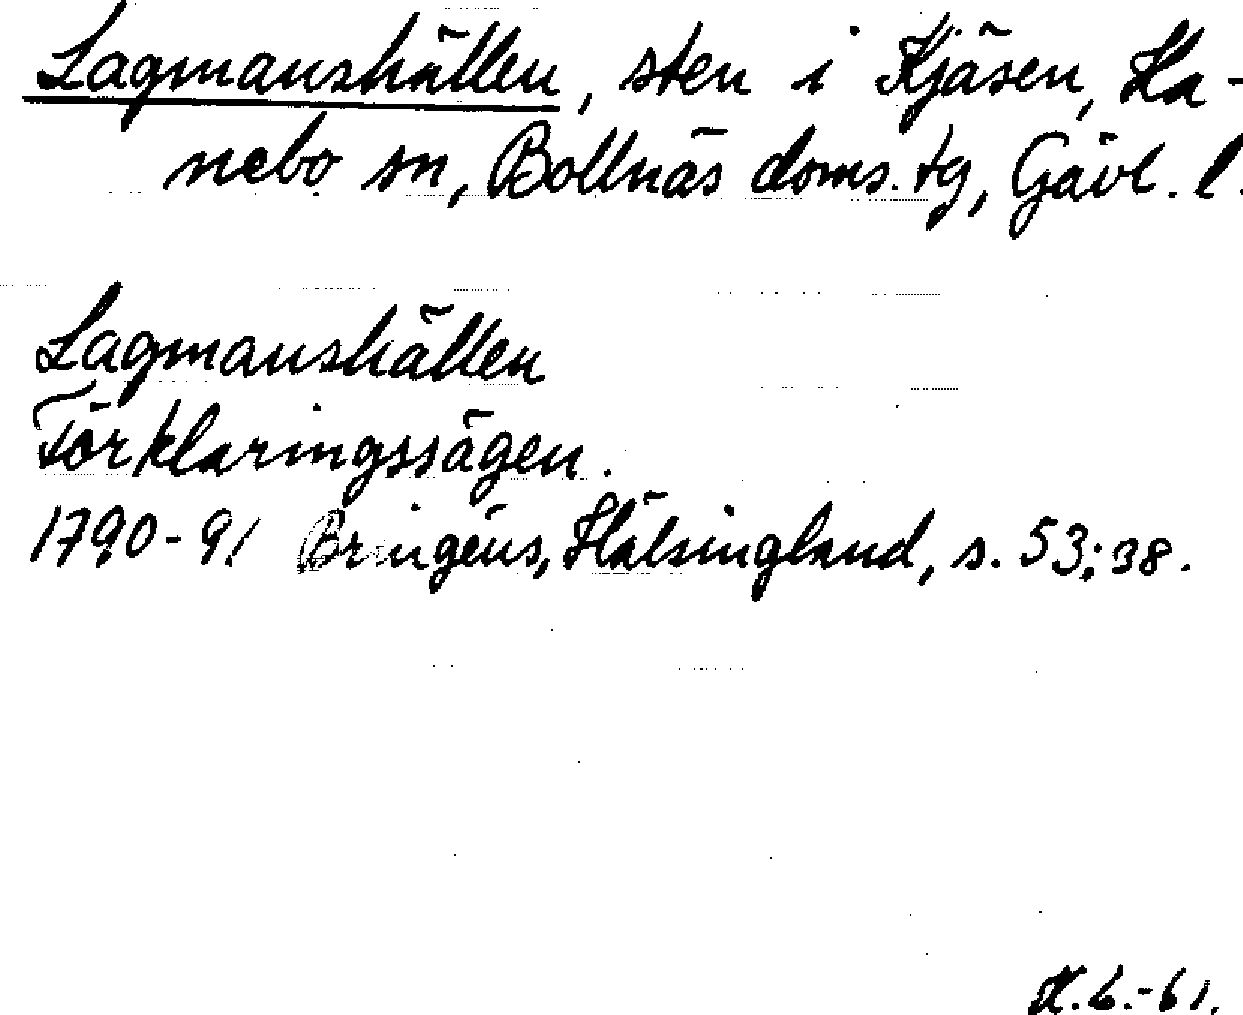 Lagmanshällen, sten i Kjäsen, Ha-
nebo sn, Bollnäs doms. tg, Gävl. l.
Lagmanshällen
Förklaringssägen.
1790-91 Bringéus, Hälsingland, s. 53; 38.
K.L.-61.